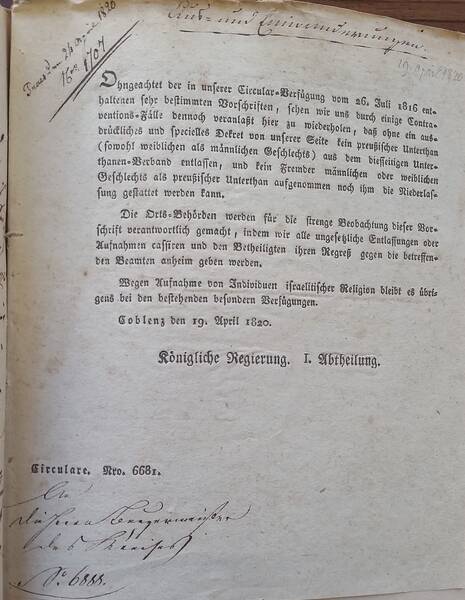 Aus- und Einwanderungen.
1820
No. 1707
19. April 1820
Ohngeachtet der in unserer Circular-Verfügung vom 26. Juli 1816 ent-
haltenen sehr bestimmten Vorschriften, sehen wir uns durch einige Contra-
ventions-Fälle dennoch veranlaßt hier zu wiederholen, daß ohne ein aus-
drückliches und specielles Dekret von unserer Seite kein preußischer Unterthan
(sowohl weiblichen als männlichen Geschlechts) aus dem diesseitigen Unter-
thanen-Verband entlassen, und kein Fremder männlichen oder weiblichen
Geschlechts als preußischer Unterthan aufgenommen noch ihm die Niederlas-
sung gestattet werden kann.
Die Orts-Behörden werden für die strenge Beobachtung dieser Vor-
schrift verantwortlich gemacht, indem wir alle ungesetzliche Entlassungen oder
Aufnahmen cassiren und den Betheiligten ihren Regreß gegen die betreffen-
den Beamten anheim geben werden.
Wegen Aufnahme von Individuen israelitischer Religion bleibt es übri-
gens bei den bestehenden besondern Verfügungen.
Coblenz den 19. April 1820.
Königliche Regierung. I. Abtheilung.
Circulare. Nro. 6681.
An
die Herren Buergermeister
des Kreises
No. 6888.